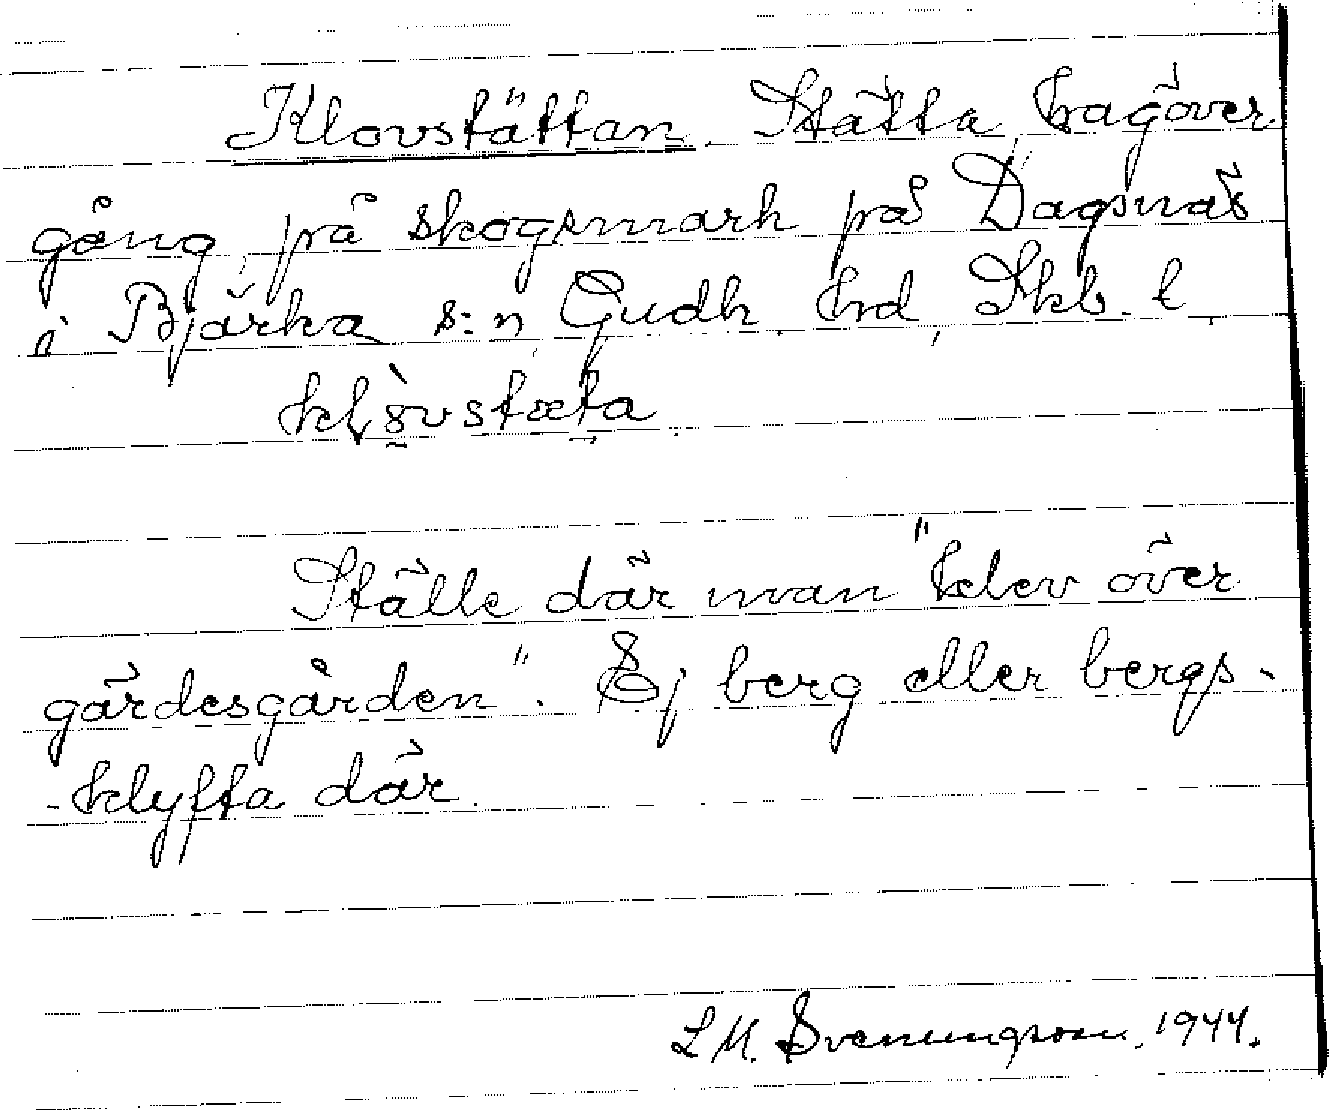 Klovstättan. Stätta, tragöver
gång, på skogsmark på Dagsnäs
i Bjärka s:n Gudh. hrd, Skb. l.
Ställe där man "klev över
gärdesgården". Ej berg eller bergs-
-klyfta där.
L M. Svenungsson. 1944.